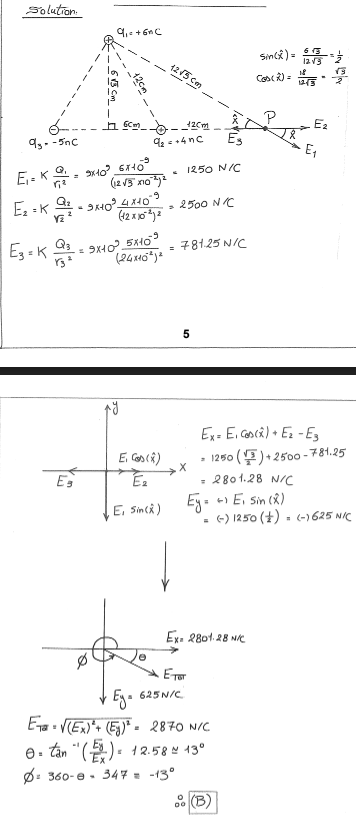 Solution:
q₁=+6nC
12√3cm
6√3cm
12cm
sin(x̂) = 6√3/12√3 = 1/2
cos(x̂) = 18/12√3 = √3/2
6cm
12cm
x̂
P
E₂
x̂
E₃
E₁
q₃=-5nC
q₂=+4nC
E₁ = K Q₁/r₁² = 9×10⁹ 6×10⁻⁹/(12√3 ×10⁻²)² = 1250 N/C
E₂ = K Q₂/r₂² = 9×10⁹ 4×10⁻⁹/(12×10⁻²)² = 2500 N/C
E₃ = K Q₃/r₃² = 9×10⁹ 5×10⁻⁹/(24×10⁻²)² = 781.25 N/C
5
y
E₁ Cos(x̂)
X
E₃
E₂
E₁ Sin(x̂)
Eₓ = E₁ Cos(x̂) + E₂ - E₃
= 1250 (√3/2) + 2500 - 781.25
= 2801.28 N/C
Ey = (-) E₁ Sin(x̂)
= (-) 1250 (1/2) = (-) 625 N/C
Eₓ = 2801.28 N/C
φ
θ
E_Tot
Ey = 625 N/C
E_Tot = √((Ex)² + (Ey)²) = 2870 N/C
θ = tan⁻¹ (Ey/Ex) = 12.58 ≃ 13°
φ = 360-θ = 347 = -13°
∴ (B)